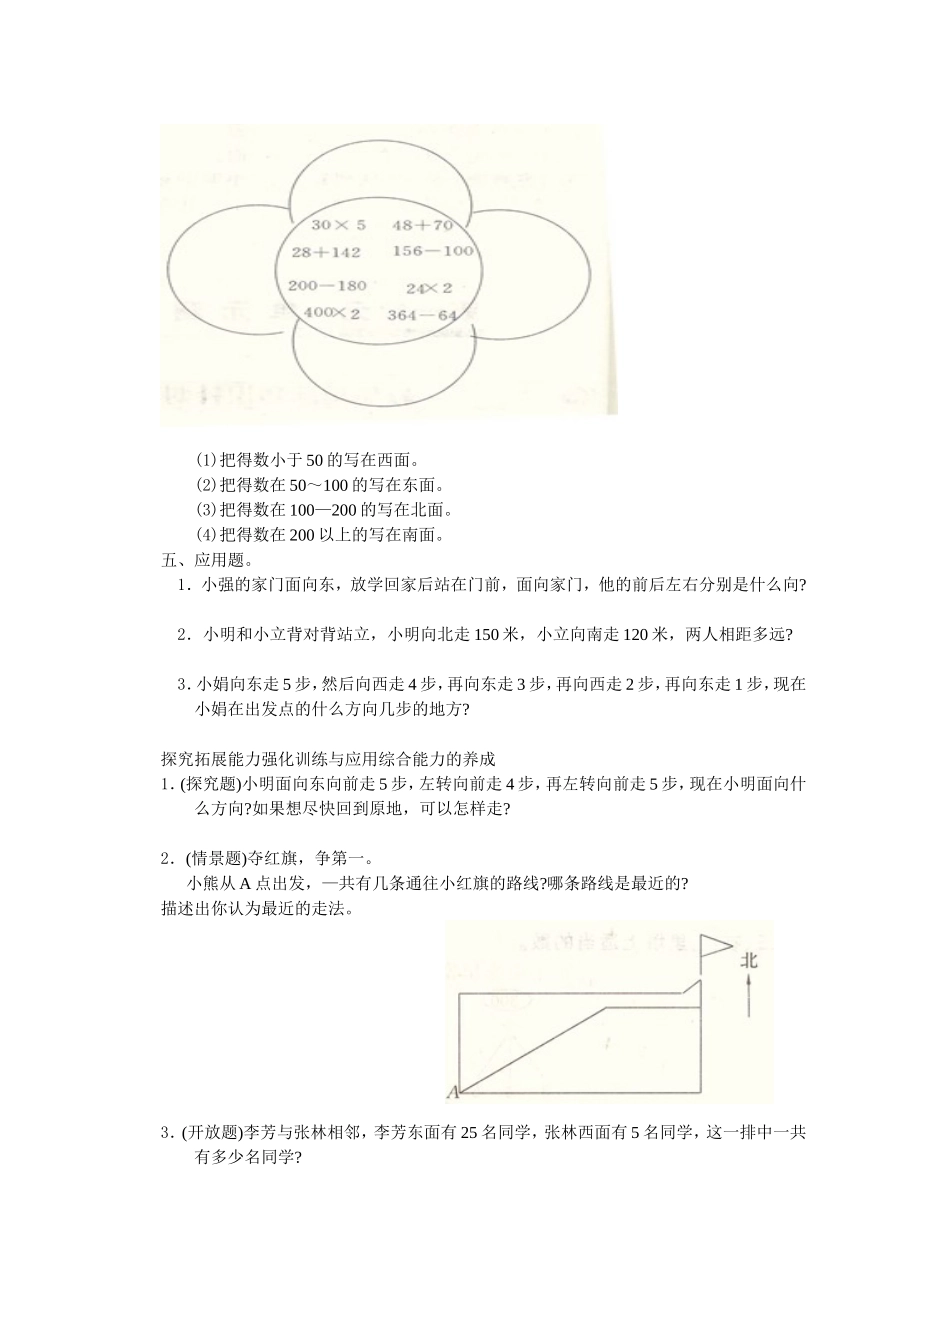 30×5 48+70
28+142 156−100
200−180 24×2
400×2 364−64
(1)把得数小于 50 的写在西面。
(2)把得数在 50～100 的写在东面。
(3)把得数在 100—200 的写在北面。
(4)把得数在 200 以上的写在南面。
五、应用题。
1．小强的家门面向东，放学回家后站在门前，面向家门，他的前后左右分别是什么向?
2．小明和小立背对背站立，小明向北走 150 米，小立向南走 120 米，两人相距多远?
3．小娟向东走 5 步，然后向西走 4 步，再向东走 3 步，再向西走 2 步，再向东走 1 步，现在
小娟在出发点的什么方向几步的地方?
探究拓展能力强化训练与应用综合能力的养成
1．(探究题)小明面向东向前走 5 步，左转向前走 4 步，再左转向前走 5 步，现在小明面向什
么方向?如果想尽快回到原地，可以怎样走?
2．(情景题)夺红旗，争第一。
小熊从 A 点出发，—共有几条通往小红旗的路线?哪条路线是最近的?
描述出你认为最近的走法。
北
A
3．(开放题)李芳与张林相邻，李芳东面有 25 名同学，张林西面有 5 名同学，这一排中一共
有多少名同学?